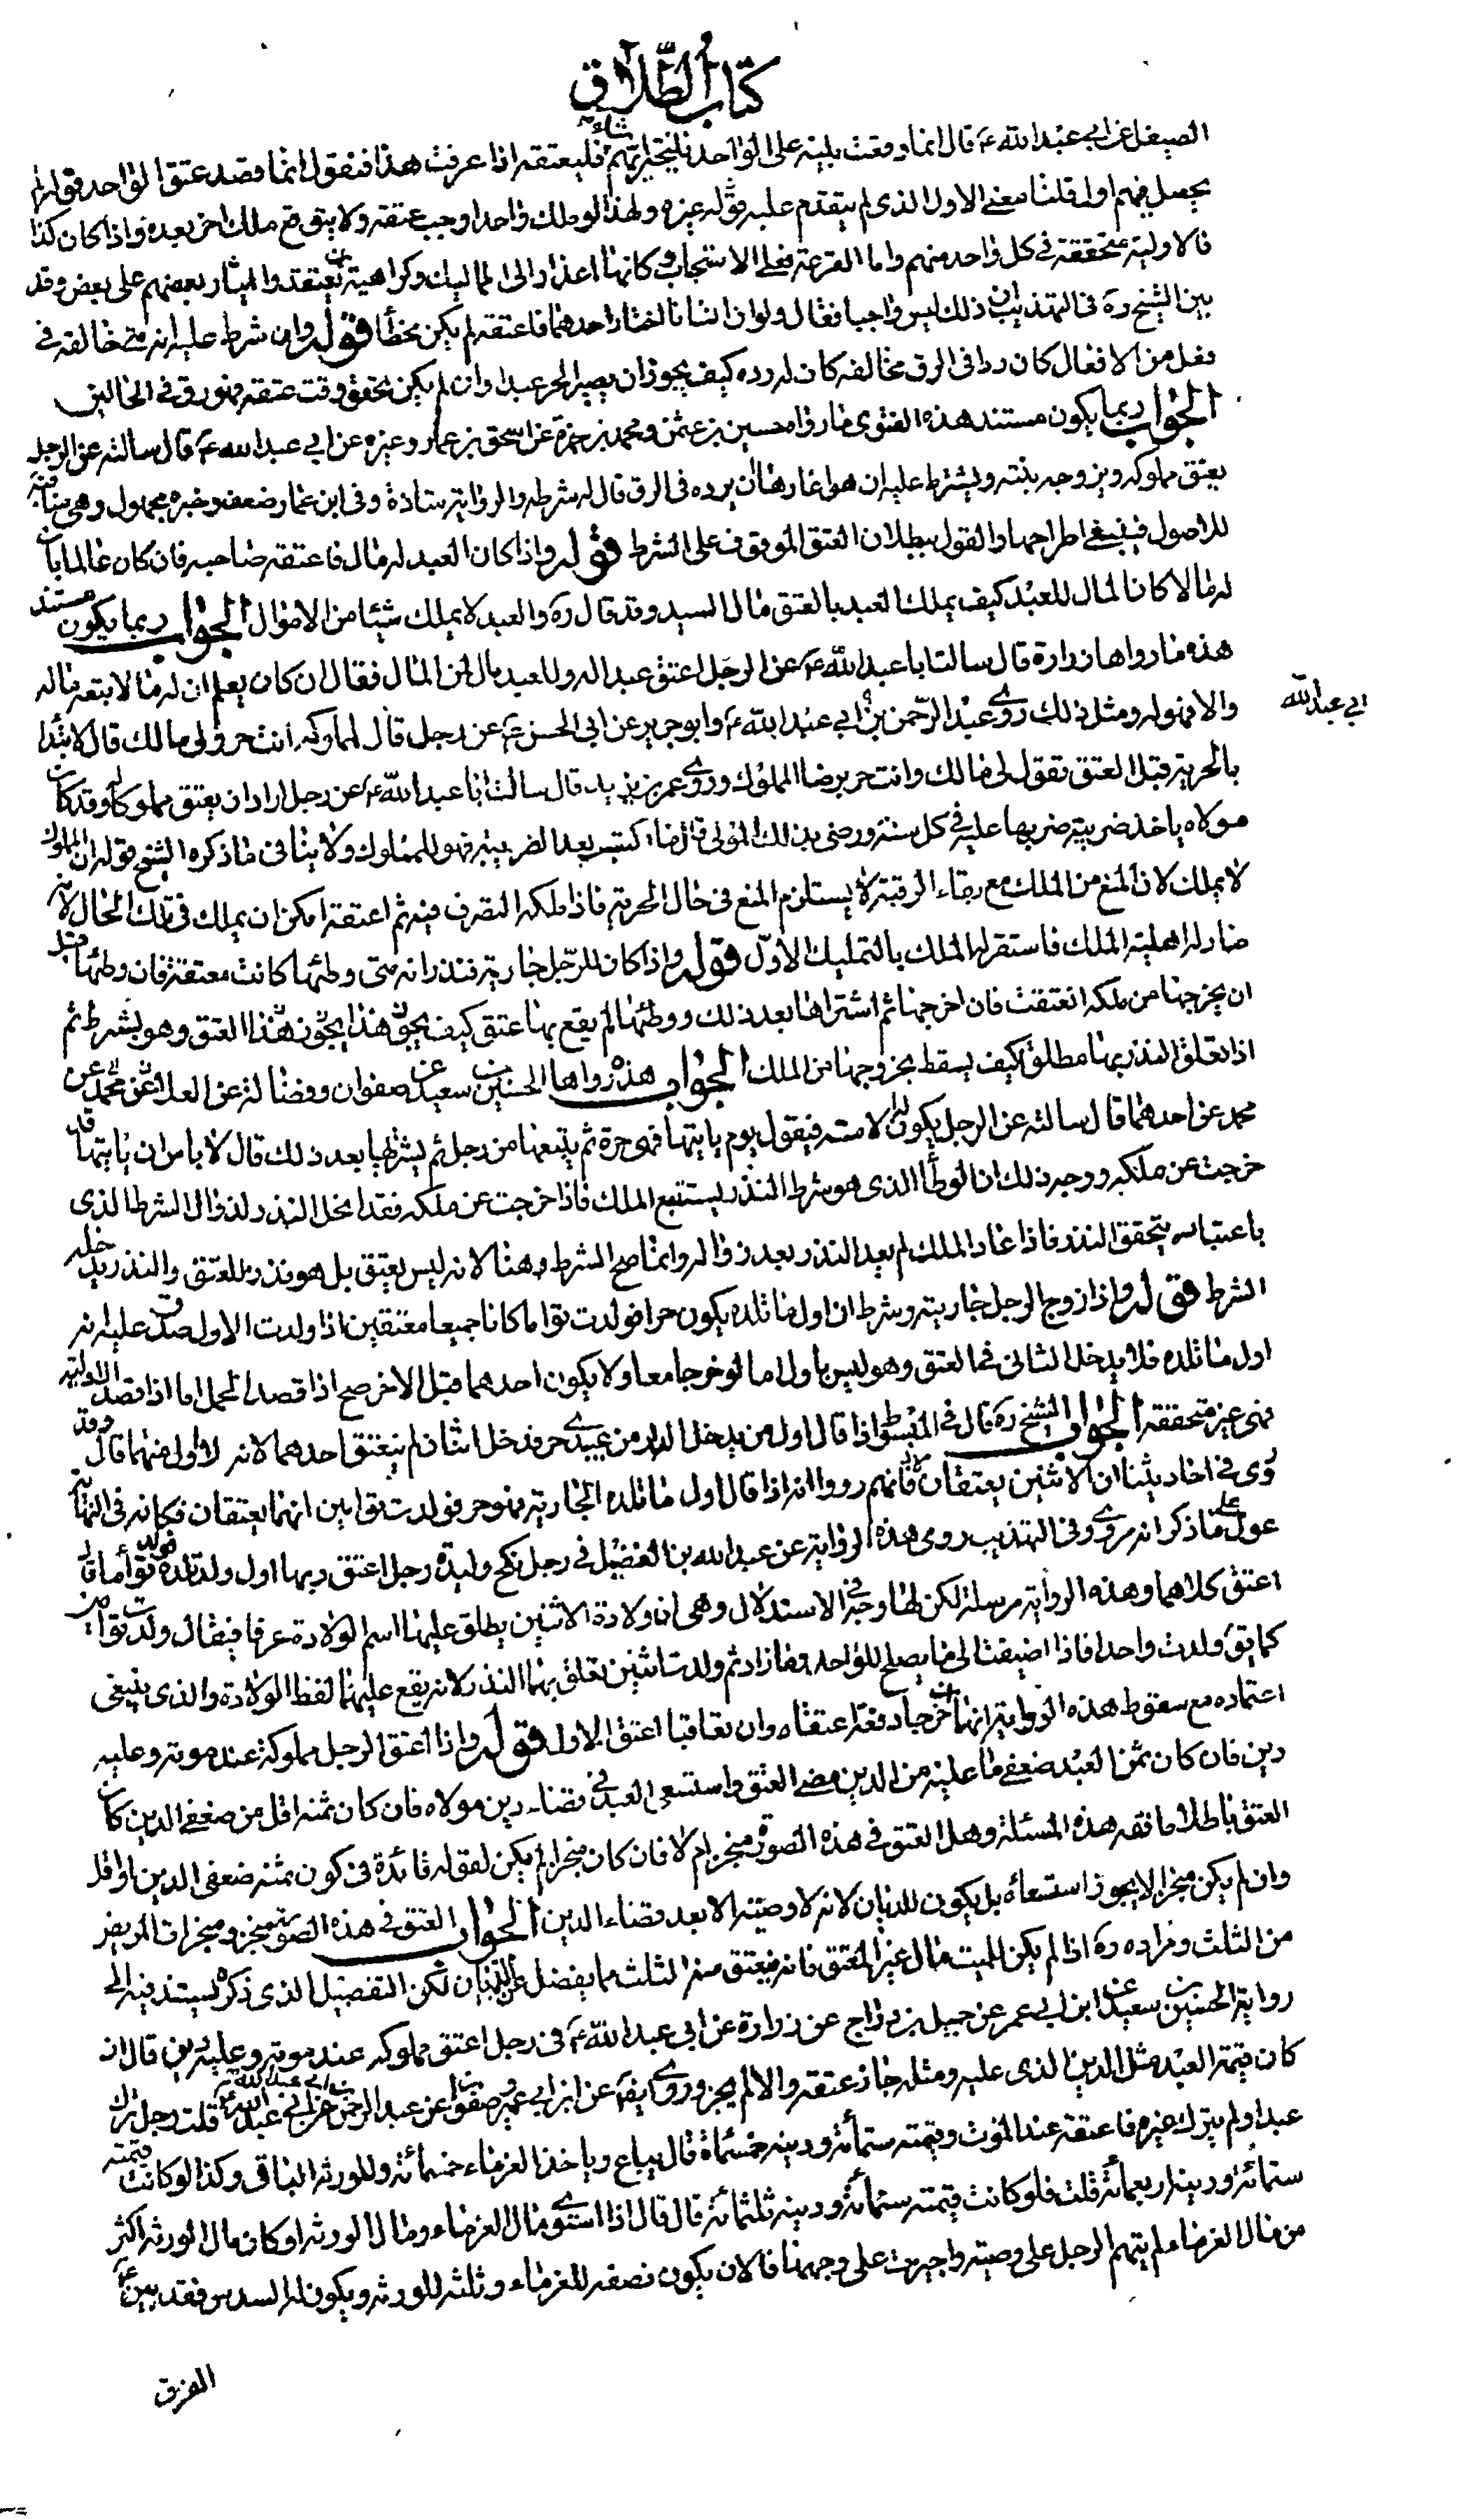 كتاب الطلاق
الصيقل عن ابي عبد الله ع قال انما وقعت يلينه على الواحد فليتخير ايهم شاء فليعتقه اذا عرفت هذا فنقول انما قصد عتق الواحد فقوله انه
يحصل فيهم اولا قلنا معنى الاول الذي لم يتقدم عليه قوله غيره ولهذا لو ملك واحدا وجب عتقه ولا يتوقع ملك اخر بعده واذا كان كذا
فالاولية متحققة في كل واحد منهم واما القرعة فعلى الاستحباب وكانها اعذار الى المماليك وكراهية تعتقد وايثار بعضهم على بعض وقد
بين الشيخ ره في التهذيب ان ذلك ليس واجبا فقال ولو ان انسانا اختار احدهما فاعتقه لم يكن مخطأ قوله وان شرط عليه انه متى خالفه في
فعل من الافعال كان ردا في الرق مخالفه كان له رده كيف يجوز ان يصير الحر عبدا وان لم يكن تحقق وقت عتقه فهو رق في الحالين
الجواب ربما يكون مستند هذه الفتوى ما رواه حسين بن عثمن ومحمد بن حمزة عن اسحق بن عمار وغيره عن ابي عبد الله ع قال سالته عن الرجل
يعتق مملوكه ويزوجه بنته ويشترط عليه ان هو اغارها ان يرده في الرق قال له شرطه والرواية شاذة وفي ابن عمار ضعف وخبره مجهول وهي منافية
للاصول فينبغي اطراحها والقول ببطلان العتق الموقوف على الشرط قوله واذا كان العبد له مال فاعتقه صاحبه فان كان عالما بان
له مالا كان المال للعبد كيف يملك العبد بالعتق مال السيد وقد قال ره والعبد لا يملك شيئا من الاموال الجواب ربما يكون مستند
هذه ما رواها زرارة قال سالت ابا عبد الله ع عن الرجل اعتق عبدا له وللعبد مال لمن المال فقال ان كان يعلم ان له مالا تبعه ماله
والا فهو له ومثل ذلك روى عبد الرحمن بن ابي عبد الله ع وابو جرير عن ابي الحسن ع عن رجل قال لمملوكه انت حر ولي مالك قال لا يبدا
ابي عبد الله
بالحرية قبل العتق تقول لي مالك وانت حر برضا المملوك وروى عمر بن يزيد قال سالت ابا عبد الله ع عن رجل اراد ان يعتق مملوكا له وقد كان
مولاه ياخذ ضريبة ضربها عليه في كل سنة ورضي بذلك المولى قال ما اكتسب بعد الضريبة فهو للمملوك ولا ينافي ما ذكره الشيخ قوله ان المملوك
لا يملك لان المنع من الملك مع بقاء الرقية لا يستلزم المنع في حال الحرية فاذا ملكه التصرف فيه ثم اعتقه امكن ان يملك في تلك الحال لانه
صار له اهلية الملك فاستقر له الملك بالتمليك الاول قوله واذا كان للرجل جارية فنذر انه متى وطئها كانت معتقة فان وطئها قبل
ان يخرجها من ملكه انعتقت فان اخرجها ثم اشتراها بعد ذلك ووطئها لم يقع بها عتق كيف يجوز هذا يجوز هذا العتق وهو بشرط ثم
اذا تعلق النذر بها مطلق كيف يسقط بخروجها من الملك الجواب هذه رواها الحسين بن سعيد عن صفوان وفضالة عن العلا عن محمد عن
محمد عن احدهما قال سالته عن الرجل يكون له الامة فيقول يوم ياتيها فهي حرة ثم يبيعها من رجل ثم يشتريها بعد ذلك قال لا باس ان ياتيها قد
خرجت عن ملكه ووجه ذلك ان الوطأ الذي هو شرط النذر يستتبع الملك فاذا خرجت عن ملكه فقد انحل النذر لزوال الشرط الذي
باعتباره يتحقق النذر فاذا عاد الملك لم يعد النذر بعد زواله وانما صح الشرط وهنا لانه ليس بعتق بل هو نذر للعتق والنذر يدخله
الشرط قوله واذا زوج الرجل جاريته وشرط ان اول ما تلده يكون حرا فولدت تواما كانا جميعا معتقين اذا ولدت الاول صدق عليه انه
اول ما تلده فلا يدخل الثاني في العتق وهو ليس باول اما لو خرجا معا ولا يكون احدهما قبل الاخر صح اذا قصد الحمل اما اذا قصد الاولية
فهي غير متحققة الجواب الشيخ ره قال في المبسوط اذا قال اول من يدخل الدار من عبيدي حر فدخل اثنان لم ينعتق احدهما لانه لا اول منهما قال وقد
روى في احاديثنا ان الاثنين يعتقان لانهم رووا انه اذا قال اول ما تلده الجارية فهو حر فولدت توامين انهما يعتقان فكانه في النهاية
عول على ما ذكر انه مروي وفي التهذيب روى هذه الرواية عن عبد الله بن الفضيل في رجل نكح وليدة رجل اعتق ربها اول ولد تلده فولدت توأما قال
اعتق كلاهما وهذه الرواية مرسلة لكن لها وجه في الاستدلال وهي ان ولادة الاثنين يطلق عليها اسم الولادة عرفا فيقال ولدت توامين
كما يق ولدت واحدا فاذا اضيفت الى ما يصلح للواحد وما زاد ثم ولدت اثنين تعلق بهما النذر لانه يقع عليهما لفظ الولادة والذي ينبغي
اعتماده مع سقوط هذه الرواية انهما ان خرجا دفعة عتقا وان تعاقبا اعتق الاول قوله واذا اعتق الرجل مملوكه عند موته وعليه
دين فان كان ثمن العبد ضعفي ما عليه من الدين مضى العتق واستسعى العبد في قضاء دين مولاه فان كان ثمنه اقل من ضعفي الدين كان
العتق باطلا ما فقه هذه المسئلة وهل العتق في هذه الصورة منجز ام لا فان كان منجزا لم يكن لقوله فائدة في كون ثمنه ضعفي الدين او اقل
وان لم يكن منجزا لا يجوز استسعاه بل يكون للديان لانه لا وصية الا بعد قضاء الدين الجواب العتق في هذه الصورة منجز ومنجزات المريض
من الثلث ومراده ره اذا لم يكن للميت مال غير المعتق فانه ينعتق منه الثلث مما يفضل عن الديان لكن التفصيل الذي ذكره يستند فيه الى
رواية الحسين بن سعيد عن ابن ابي عمير عن جميل بن دراج عن زرارة عن ابي عبد الله ع في رجل اعتق مملوكه عند موته وعليه دين قال ان
كان قيمة العبد مثل الدين الذي عليه ومثله جاز عتقه والا لم يجز وروى ايضا عن ابن ابي عمير وصفوان عن عبد الرحمن بن ابي عبد الله ع قلت رجل ترك
عبدا ولم يترك غيره فاعتقه عند الموت وقيمته ستمائة ودينه خمسمائة قال يباع وياخذ الغرماء خمسمائة وللورثة الباقي وكذا لو كانت قيمته
ستمائة ودينه اربعمائة قلت فلو كانت قيمته ستمائة ودينه ثلثمائة قال قال اذا استوى مال الغرماء ومال الورثة او كان مال الورثة اكثر
من مال الغرماء لم يتهم الرجل على وصيته واجيزت على وجهها فالان يكون نصفه للغرماء وثلثه للورثة ويكون له السدس فقد بين ع
الفرق